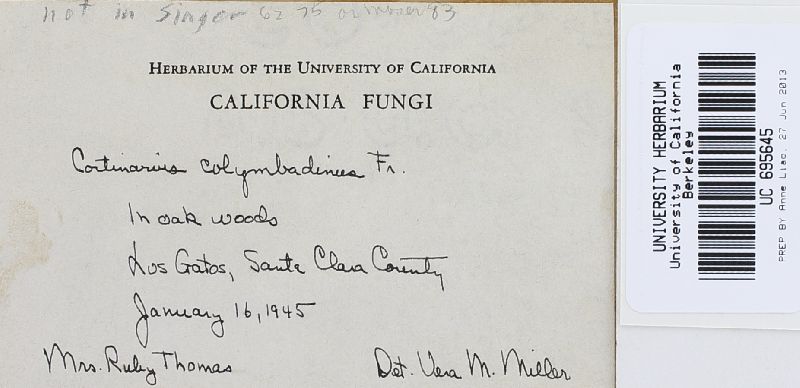 not in Singer 62 75 or moser 83
HERBARIUM OF THE UNIVERSITY OF CALIFORNIA
CALIFORNIA FUNGI
Cortinarius colymbadinus Fr.
In oak woods
Los Gatos, Santa Clara County
January 16, 1945
Mrs. Ruby Thomas
Det. Vera M. Miller
UNIVERSITY HERBARIUM
University of California
Berkeley
UC 695645
PREP BY Anne Liao, 27 Jun 2013